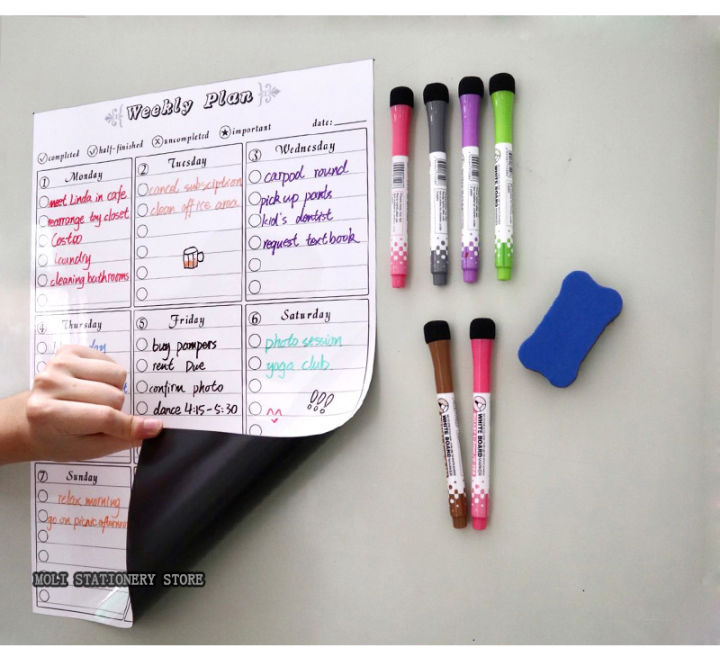 Weekly Plan
completed half-finished uncompleted important date:
1 Monday
meet Linda in cafe
rearrange toy closet
Costco
laundry
cleaning bathrooms
2 Tuesday
cancel subsciption
clean office area
3 Wednesday
carpool round
pick up pants
kid's dentist
request textbook
4 Thursday
day
5 Friday
buy pampers
rent Due
confirm photo
dance 4:15-5:30
6 Saturday
photo session
yoga club
!!!
7 Sunday
relax morning
go on picnic afternoon
MOLI STATIONERY STORE
WHITE BOARD
WHITE BOARD
WHITE BOARD